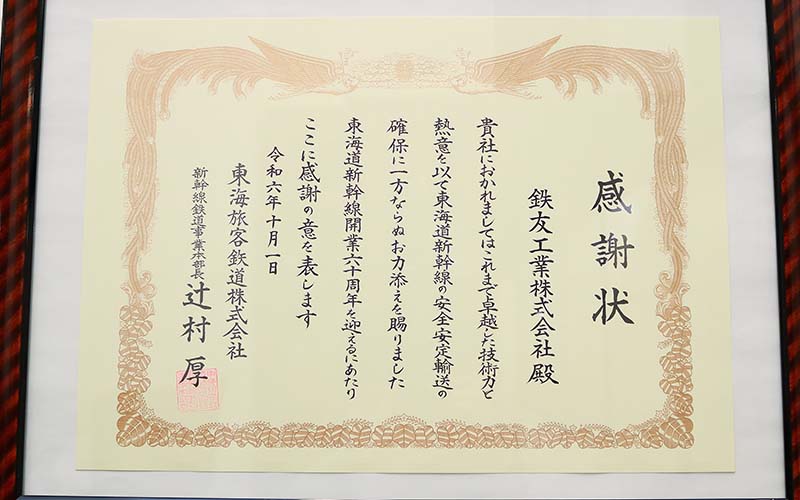 感謝状
鉄友工業株式会社 殿
貴社におかれましてはこれまで卓越した技術力と
熱意を以て東海道新幹線の安全安定輸送の
確保に一方ならぬお力添えを賜りました
東海道新幹線開業六十周年を迎えるにあたり
ここに感謝の意を表します
令和六年十月一日
東海旅客鉄道株式会社
新幹線鉄道事業本部長 辻村 厚